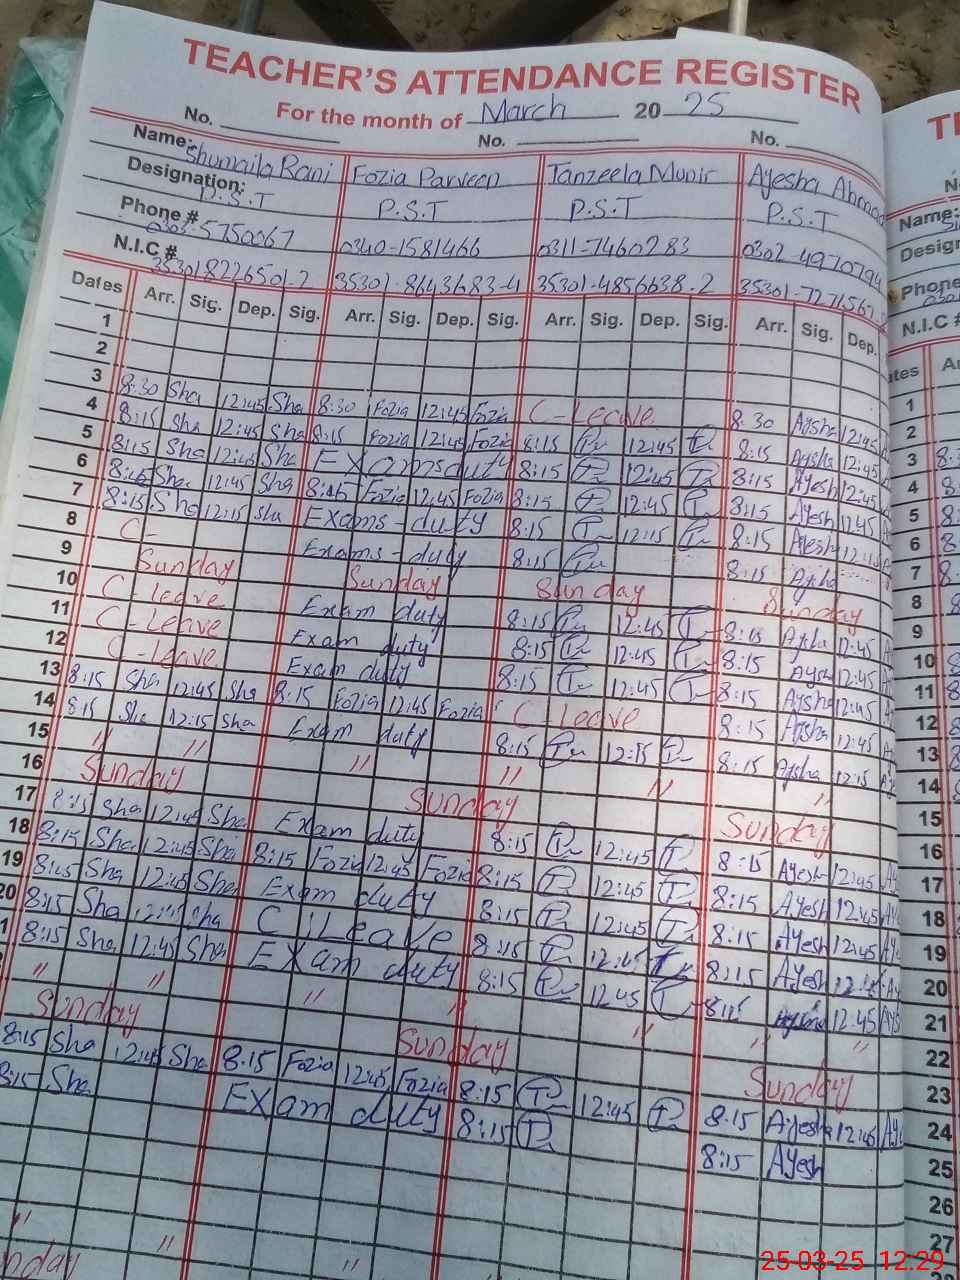 TEACHER'S ATTENDANCE REGISTER
For the month of March 2025
No. No. No.
Name: Shumaila Rani Fozia Parveen Tanzeela Munir Ayesha Ahmad
Designation: P.S.T P.S.T P.S.T P.S.T
Phone # 0303-5750067 0340-1581466 0311-7460283 0302-4970794
N.I.C # 35301-8643683-4 35301-4856638-2
Dates Arr. Sig. Dep. Sig. Arr. Sig. Dep. Sig. Arr. Sig. Dep. Sig. Arr. Sig. Dep.
1
2
3 8:30 Sha 12:45 Sha 8:30 Fozia 12:45 Fozia C-Leave 8:30 Aysha 12:45
4 8:15 Sha 12:45 Sha 8:15 Fozia 12:45 Fozia 8:15 12:45 8:15 Aysha 12:45
5 8:15 Sha 12:45 Sha Exams duty 8:15 12:45 8:15 Ayesh 12:45
6 8:15 Sha 12:45 Sha 8:15 Fozia 12:45 Fozia 8:15 12:45 8:15 Ayesh 12:45
7 8:15 Sha 12:15 Sha Exams-duty 8:15 12:15 8:15 Ayesh 12:15
8 C- Exams-duty 8:15 8:15 Aysha
9 Sunday Sunday Sunday Sunday
10 C-leave Exam duty 8:15 12:45 8:15 Aysha 12:45
11 C-Leave Exam duty 8:15 12:45 8:15 Aysha 12:45
12 C-leave Exam duty 8:15 12:45 8:15 Aysha 12:45
13 8:15 Sha 12:45 Sha 8:15 Fozia 12:45 Fozia C-leave 8:15 Aysha 12:45
14 8:15 Sha 12:15 Sha Exam duty 8:15 12:15 8:15 Aysha 12:15
15 " " " " " "
16 Sunday Sunday Sunday
17 8:15 Sha 12:45 Sha Exam duty 8:15 12:45 8:15 Ayesh 12:45
18 8:15 Sha 12:45 Sha 8:15 Fozia 12:45 Fozia 8:15 12:45 8:15 Ayesh 12:45
19 8:15 Sha 12:45 Sha Exam duty 8:15 12:45 8:15 Ayesh 12:45
20 8:15 Sha 12:45 Sha C Leave 8:15 12:45 8:15 Ayesh 12:45
1 8:15 Sha 12:45 Sha Exam duty 8:15 12:45 8:15 12:45
" " " " " " "
Sunday Sunday Sunday
8:15 Sha 12:45 Sha 8:15 Fozia 12:45 Fozia 8:15 12:45 8:15 Ayesh 12:45
8:15 Sha Exam duty 8:15 8:15 Ayesh
" " "
nday
Name:
Design
Phone
N.I.C #
ates
1
2
3
4
5
6
7
8
9
10
11
12
13
14
15
16
17
18
19
20
21
22
23
24
25
26
27
25-03-25 12:29